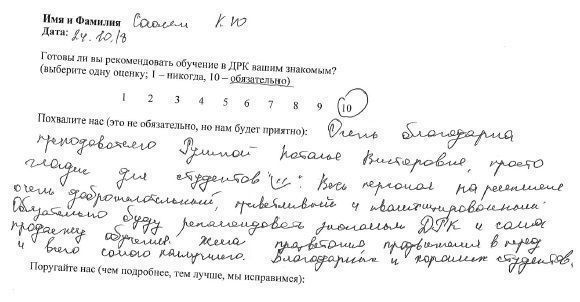 Имя и Фамилия К.Ю
Дата: 24.10/8
Готовы ли вы рекомендовать обучение в ДРК вашим знакомым?
(выберите одну оценку; 1 – никогда, 10 – обязательно)
1 2 3 4 5 6 7 8 9 10
Похвалите нас (это не обязательно, но нам будет приятно): Очень благодарна
преподавателю Наталье Викторовне, просто
для студентов Весь персонал на ресепшене
очень доброжелательный, приветливый и квалифицированный.
Обязательно буду рекомендовать знакомым ДРК и сама
обучение. Желаю процветания продвижения в перед
и всего самого наилучшего. Благодарных и хороших студентов.
Поругайте нас (чем подробнее, тем лучше, мы исправимся):